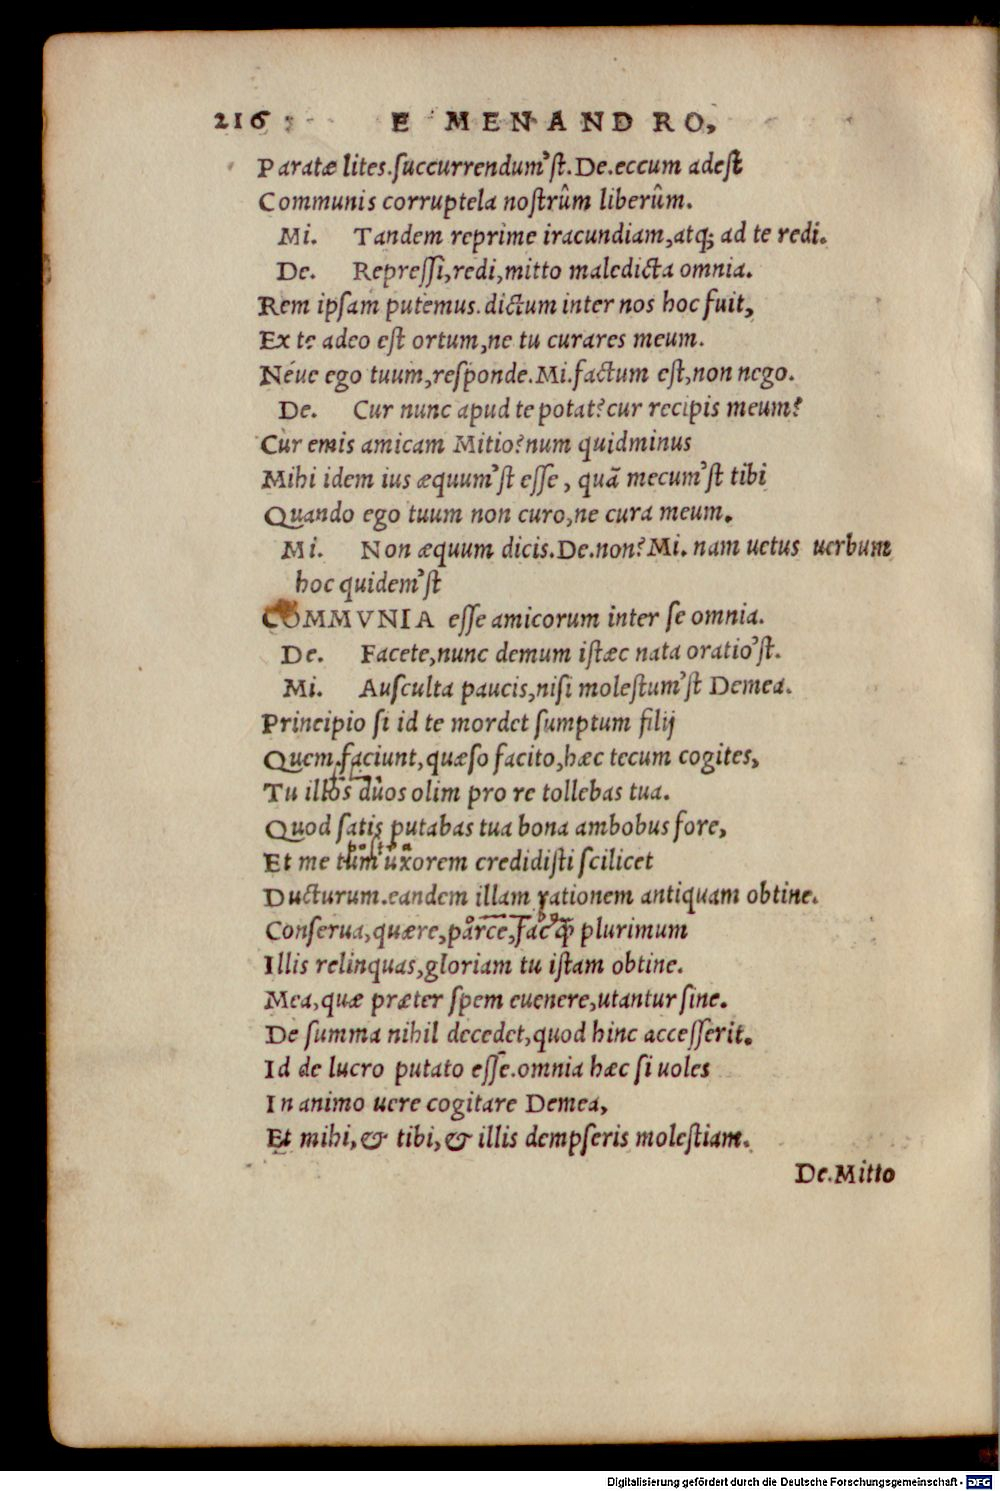 216 E MENANDRO,
Paratæ lites.ſuccurrendum'ſt.De.eccum adeſt
Communis corruptela noſtrûm liberûm.
Mi. Tandem reprime iracundiam,atq; ad te redi.
De. Repreſſi,redi,mitto maledicta omnia.
Rem ipſam putemus.dictum inter nos hoc fuit,
Ex te adeo eſt ortum,ne tu curares meum.
Néue ego tuum,reſponde.Mi.factum eſt,non nego.
De. Cur nunc apud te potat?cur recipis meum?
Cur emis amicam Mitio?num quidminus
Mihi idem ius æquum'ſt eſſe, quā mecum'ſt tibi
Quando ego tuum non curo,ne cura meum.
Mi. Non æquum dicis.De.non?Mi.nam uetus uerbum
hoc quidem'ſt
COMMVNIA eſſe amicorum inter ſe omnia.
De. Facete,nunc demum iſtæc nata oratio'ſt.
Mi. Auſculta paucis,niſi moleſtum'ſt Demea.
Principio ſi id te mordet ſumptum filij
Quem faciunt,quæſo facito,hæc tecum cogites,
Tu illos duos olim pro re tollebas tua.
Quod ſatis putabas tua bona ambobus fore,
Et me tum uxorem credidiſti ſcilicet
Ducturum.eandem illam rationem antiquam obtine.
Conſerua,quære,parce,fac ꝙ plurimum
Illis relinquas,gloriam tu iſtam obtine.
Mea,quæ præter ſpem euenere,utantur ſine.
De ſumma nihil decedet,quod hinc acceſſerit.
Id de lucro putato eſſe.omnia hæc ſi uoles
In animo uere cogitare Demea,
Et mihi,& tibi,& illis dempſeris moleſtiam.
De.Mitto
Digitalisierung gefördert durch die Deutsche Forschungsgemeinschaft - DFG